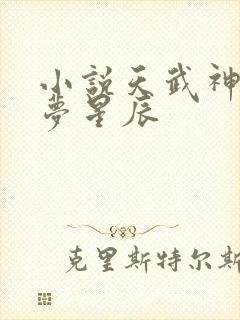 小说天武神
夢星辰
克里斯特尔斯